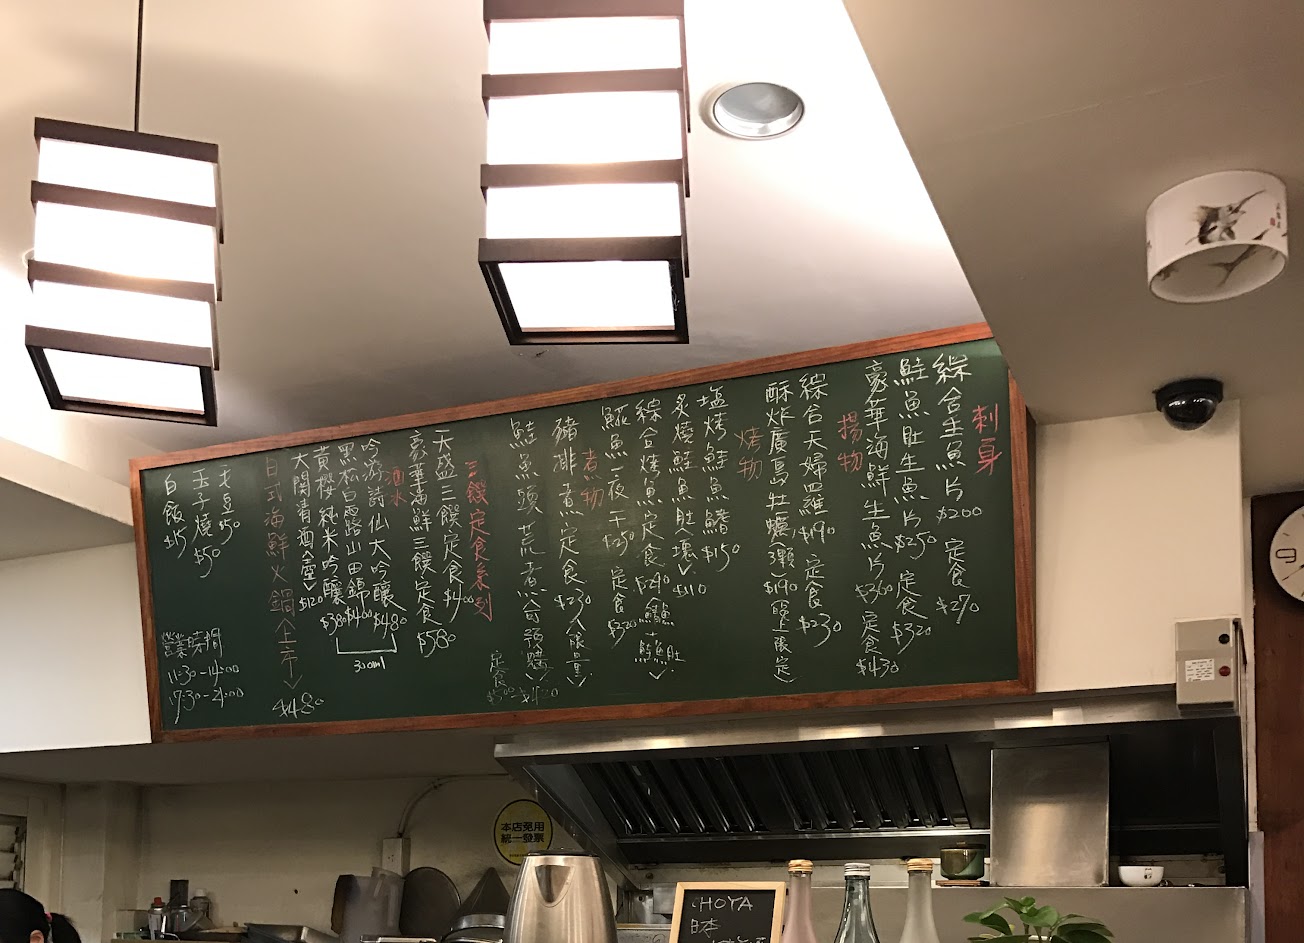 刺身
綜合生魚片$200 定食$270
鮭魚肚生魚片$250 定食$320
豪華海鮮生魚片$360 定食$430
揚物
綜合天婦羅$190 定食$230
酥炸廣島牡蠣(3顆)$190(晚上限定)
烤物
塩烤鮭魚鰭$150
炙燒鮭魚肚(塊)$110
綜合烤魚定食$290
魚一夜干$250 定食$320
煮物
豬排煮定食$230(限量)
鮭魚頭荒煮(可預購)$420
定食$500
三饌定食系列
天盛三饌定食$400
豪華海鮮三饌定食$580
酒水
吟游詩仙大吟釀$480
黑松白露路山田錦$400
黃櫻純米吟釀$380
300ml
大関清酒(壺)$120
日式海鮮火鍋(上市)$480
毛豆$50
玉子燒$50
白飯$15
營業時間
11:30-14:00
17:30-21:00
本店免用
統一發票
HOYA
日本